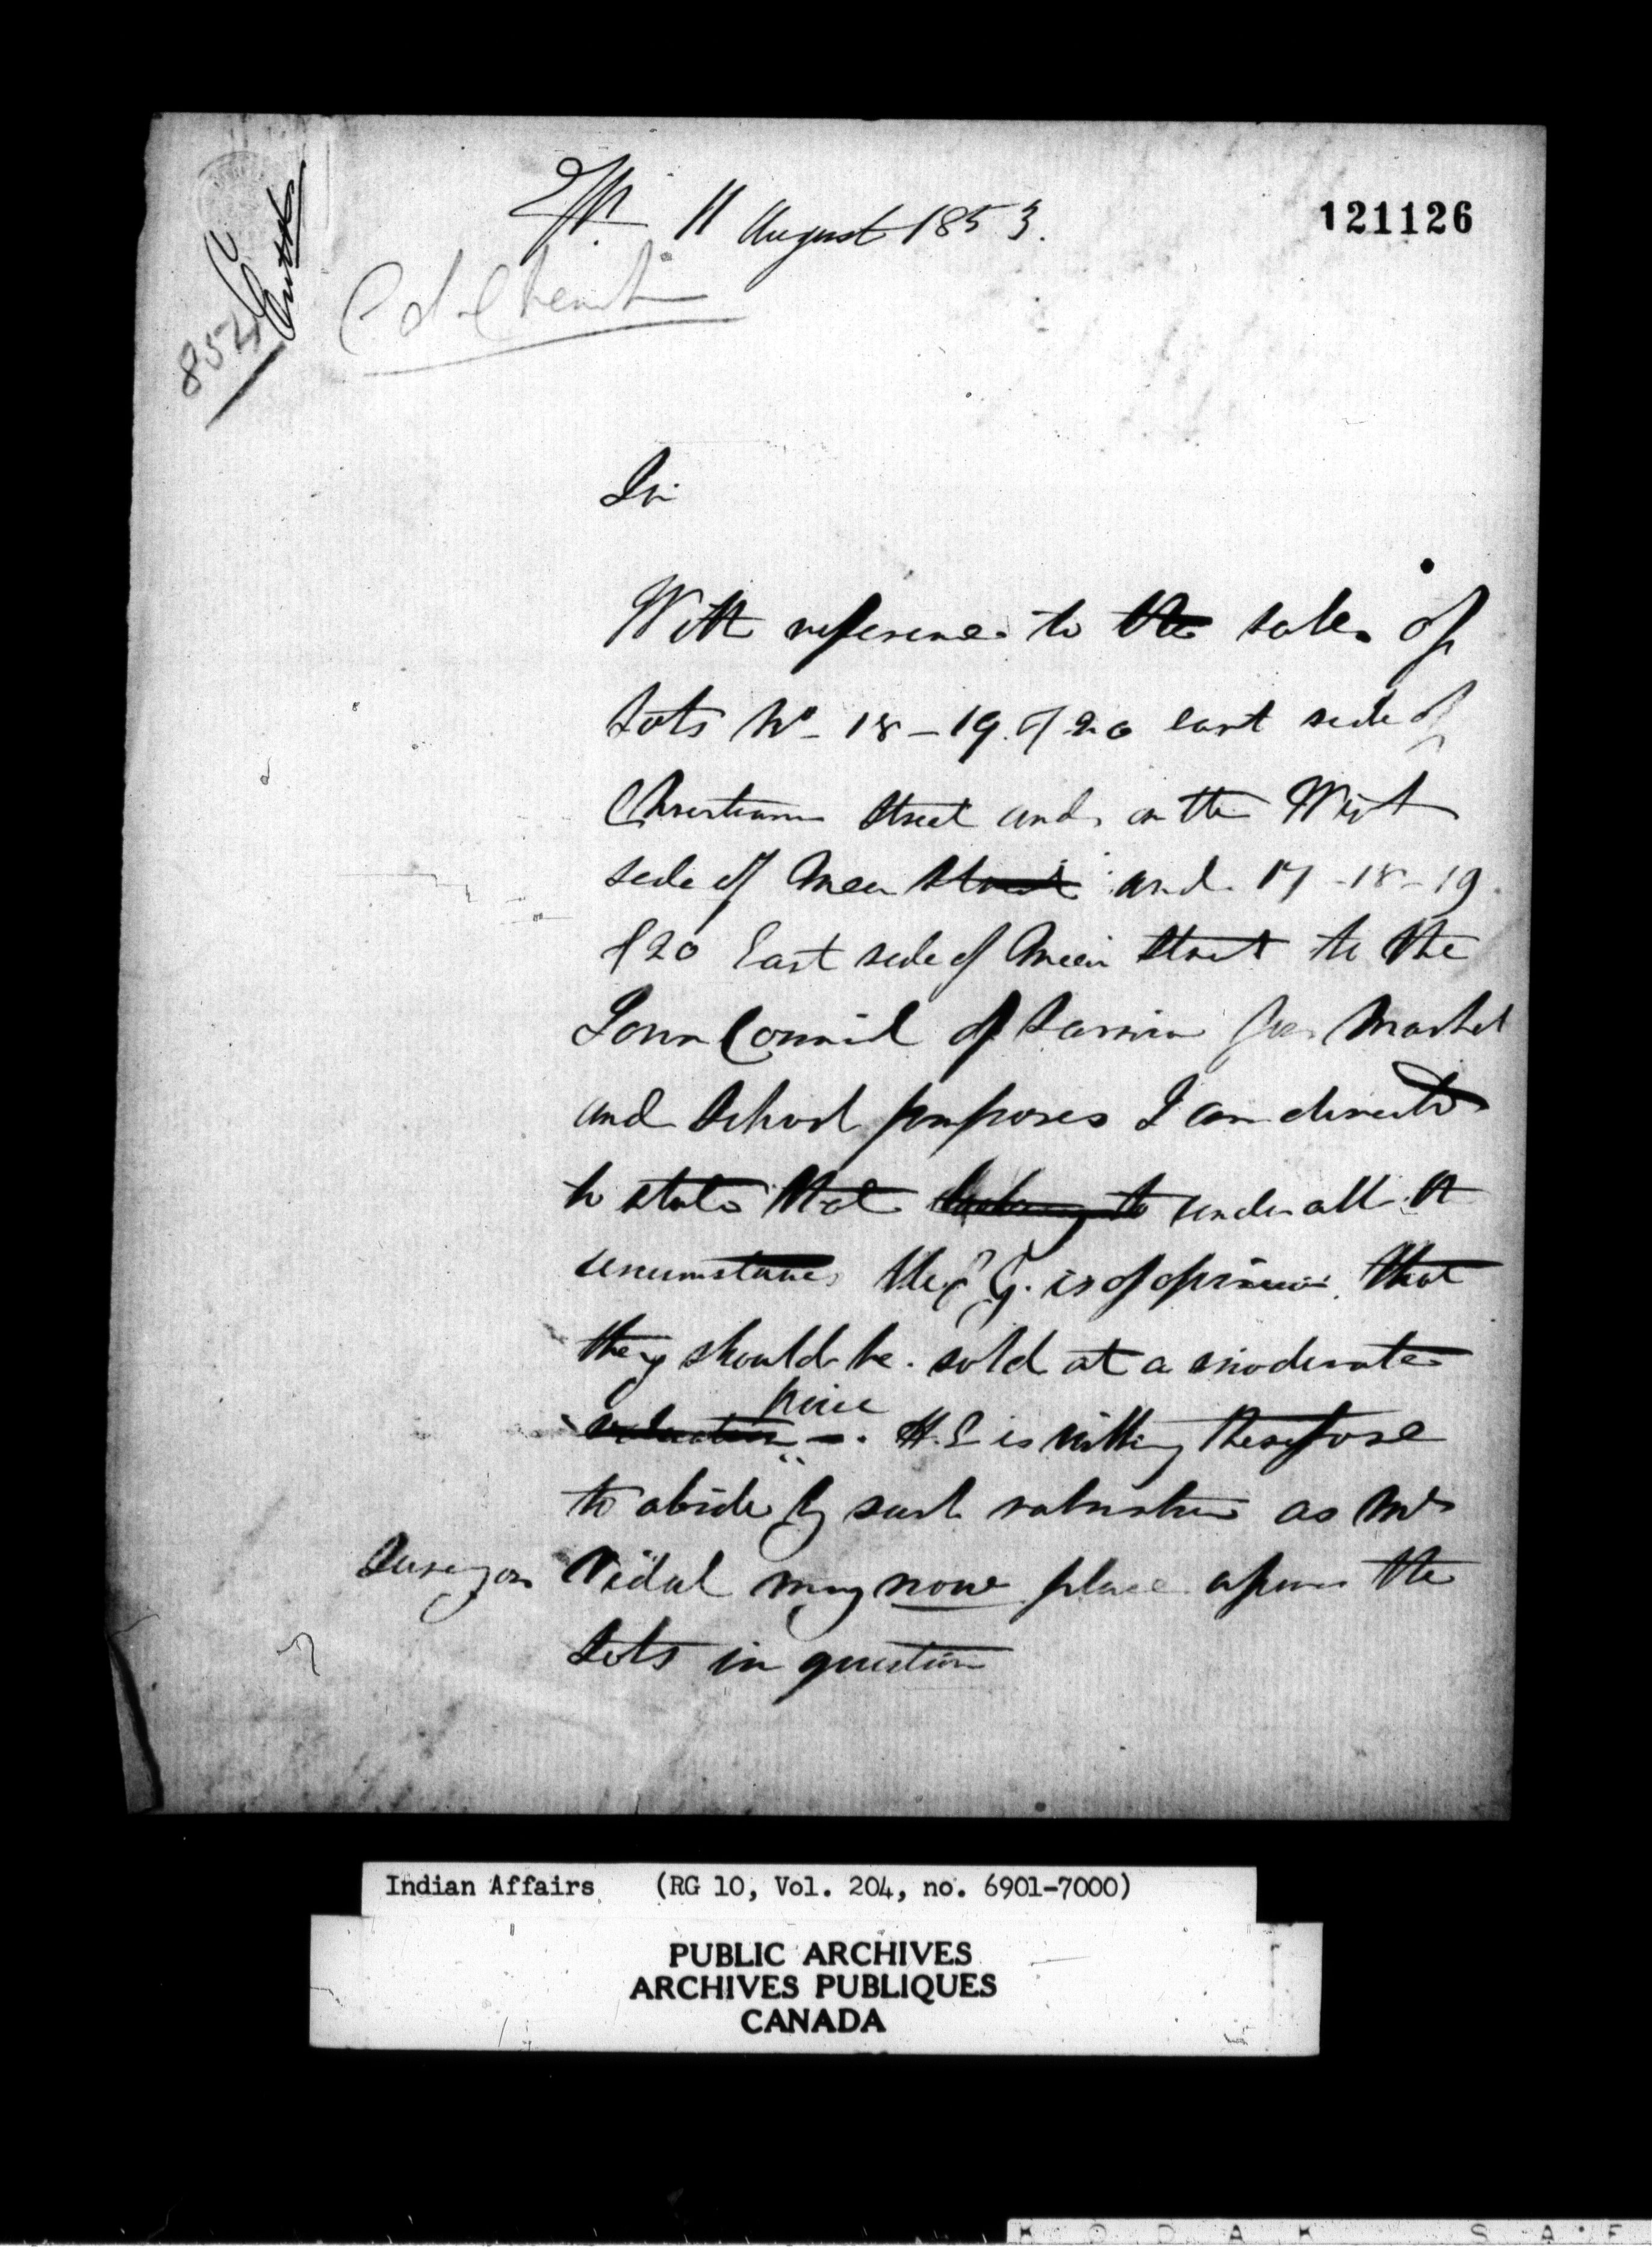 11 August 1853.
121126
854
Sir
With reference to the sale of
Lots No - 18 - 19 & 20 east side of
Christiana Street and on the West
side of Street and 17 - 18 - 19
& 20 East side of Street to the
Town Council of Sarnia for Market
and School purposes I am directed
to state that looking to under all the
circumstances the G. G. is of opinion that
they should be sold at a moderate
price
valuation - . H. E is willing therefore
to abide by such valuation as Mr
Surveyor Vidal may now place upon the
Lots in question
Indian Affairs (RG 10, Vol. 204, no. 6901-7000)
PUBLIC ARCHIVES
ARCHIVES PUBLIQUES
CANADA
KODAK SAFE